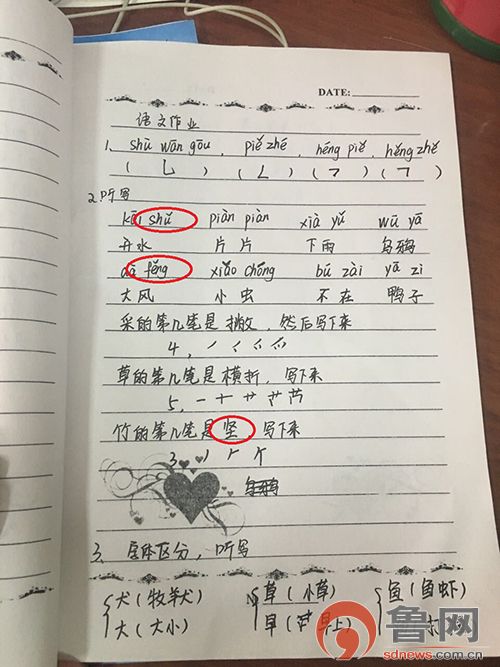 DATE:
语文作业
1. shù wān gōu , piě zhé , héng piě , héng zhé
( ㇄ ) ( ㇜ ) ( ㇇ ) ( ㇕ )
2. 听写
kāi shuǐ piàn piàn xià yǔ wū yā
开水 片片 下雨 乌鸦
dà fēng xiǎo chóng bú zài yā zi
大风 小虫 不在 鸭子
采的第几笔是撇, 然后写下来
4,
草的第几笔是横折, 写下来
5,
竹的第几笔是坚, 写下来
3,
3、 形体区分, 听写
犬(牧羊犬) 草(小草) 鱼(鱼虾)
大(大小) 早(早上)
鲁网
sdnews.com.cn